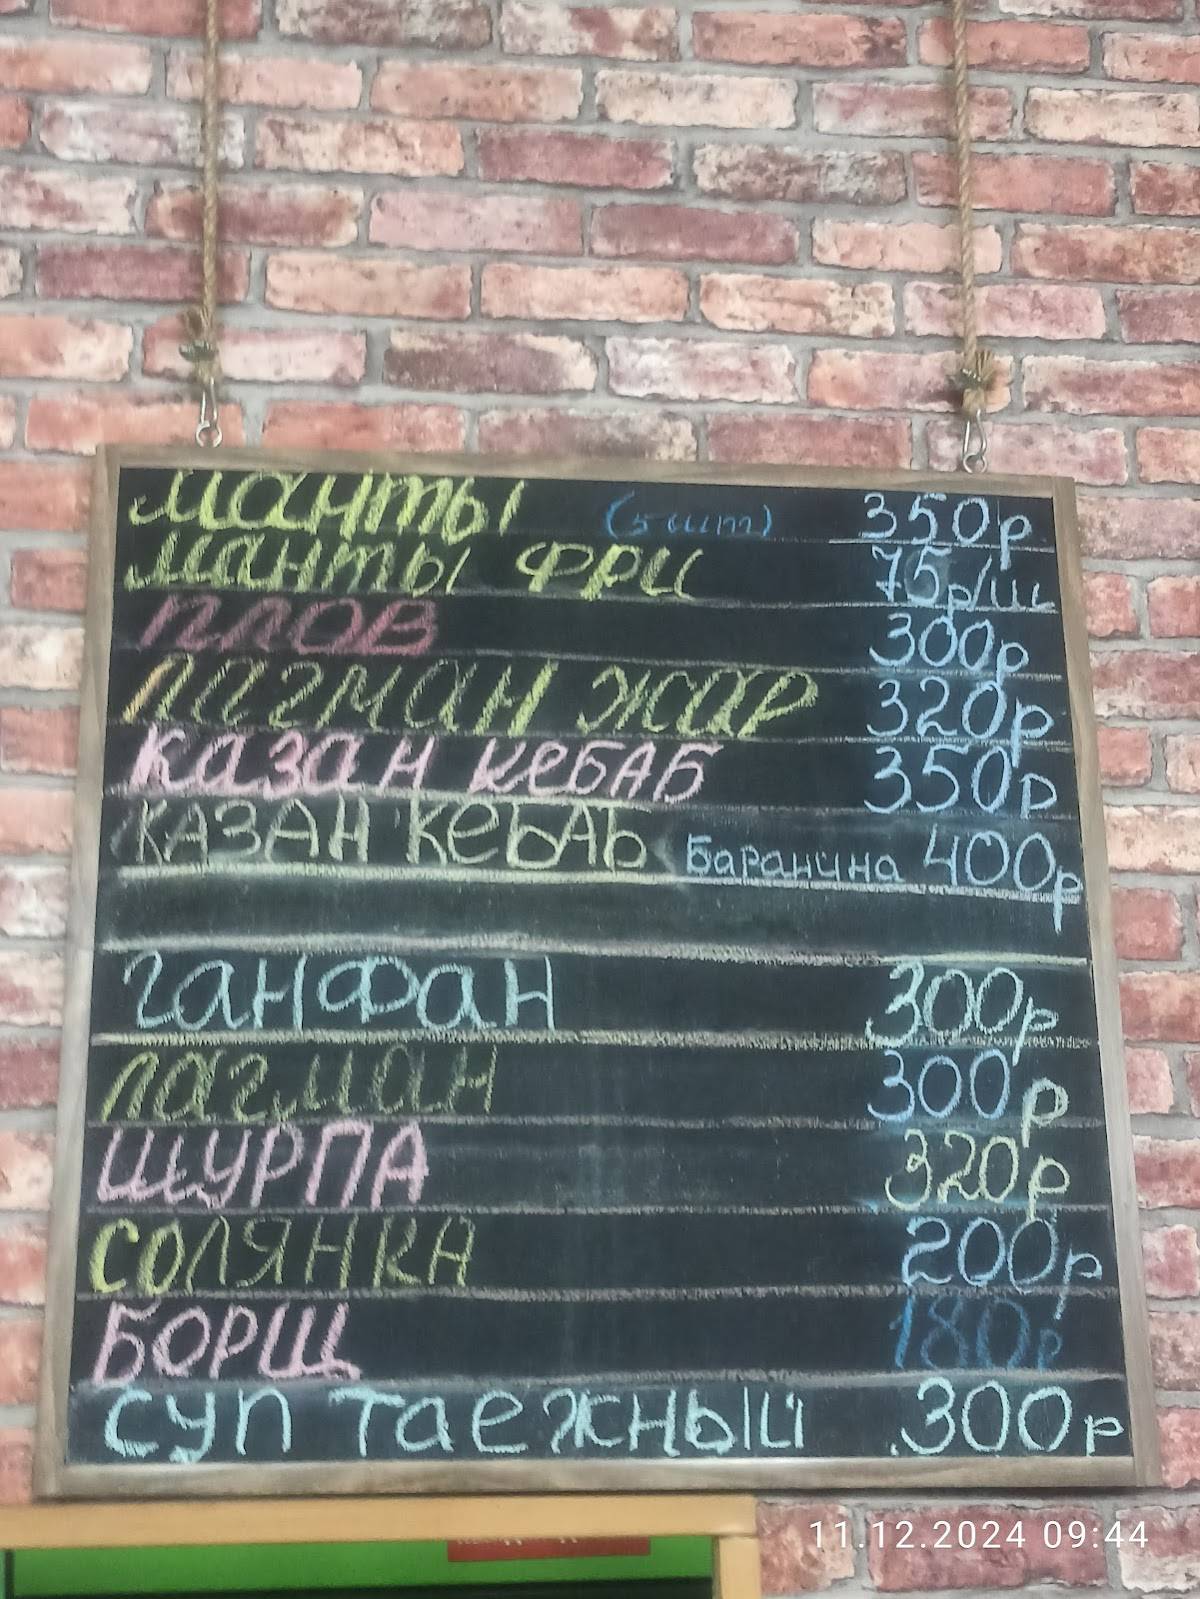 манты (5 шт) 350р
манты фри 75р/ш
плов 300р
лагман жар 320р
казан кебаб 350р
казан кебаб баранина 400р
ганфан 300р
лагман 300р
шурпа 320р
солянка 200р
борщ 180р
суп таежный 300р
11.12.2024 09:44